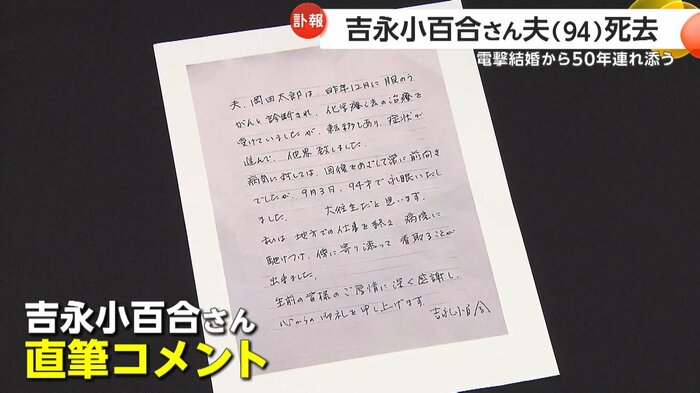 訃報
吉永小百合さん夫(94)死去
電撃結婚から50年連れ添う
夫、岡田太郎は、昨年12月に膀のう
がんと診断され、化学療法の治療を
受けていましたが、転移もあり、症状が
進んで、他界致しました。
病気に対しては、回復をめざして常に前向き
でしたが、9月3日、94才で永眠いたし
ました。 大往生だと思います。
私は地方での仕事を終え、病院に
駆けつけ、傍に寄り添って看取ることが
出来ました。
生前の皆様のご厚情に深く感謝し、
心からの御礼を申し上げます
吉永小百合
吉永小百合さん
直筆コメント